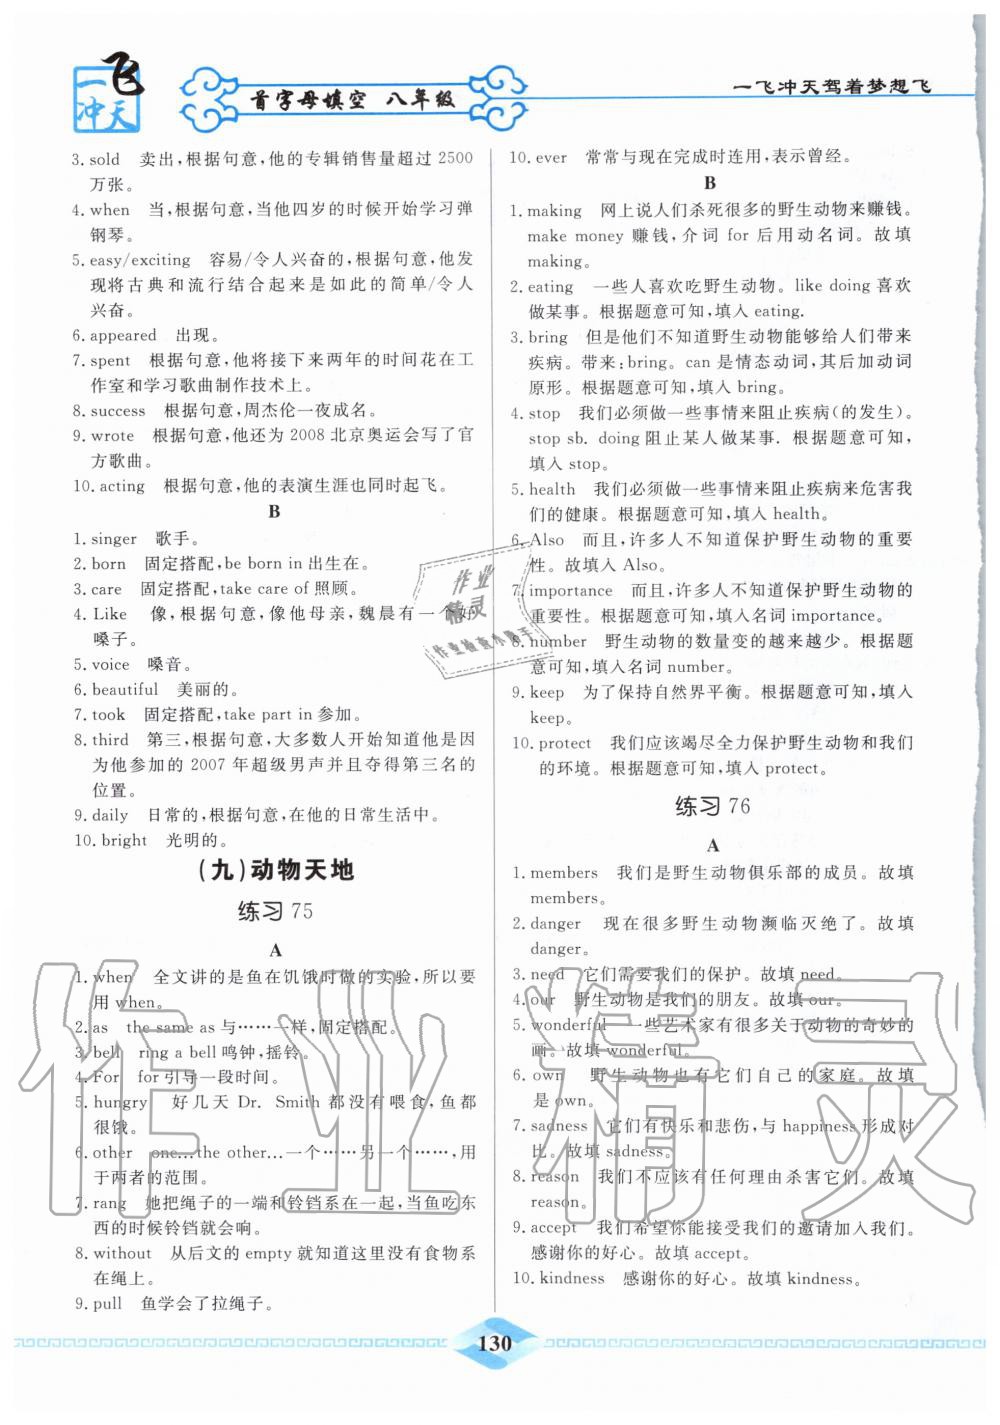 一飞冲天
首字母填空 八年级
一飞冲天驾着梦想飞
3. sold 卖出,根据句意,他的专辑销售量超过 2500
万张。
4. when 当,根据句意,当他四岁的时候开始学习弹
钢琴。
5. easy/exciting 容易/令人兴奋的,根据句意,他发
现将古典和流行结合起来是如此的简单/令人
兴奋。
6. appeared 出现。
7. spent 根据句意,他将接下来两年的时间花在工
作室和学习歌曲制作技术上。
8. success 根据句意,周杰伦一夜成名。
9. wrote 根据句意,他还为 2008 北京奥运会写了官
方歌曲。
10. acting 根据句意,他的表演生涯也同时起飞。
B
1. singer 歌手。
2. born 固定搭配,be born in 出生在。
3. care 固定搭配,take care of 照顾。
4. Like 像,根据句意,像他母亲,魏晨有一个好
嗓子。
5. voice 嗓音。
6. beautiful 美丽的。
7. took 固定搭配,take part in 参加。
8. third 第三,根据句意,大多数人开始知道他是因
为他参加的 2007 年超级男声并且夺得第三名的
位置。
9. daily 日常的,根据句意,在他的日常生活中。
10. bright 光明的。
(九)动物天地
练习 75
A
1. when 全文讲的是鱼在饥饿时做的实验,所以要
用 when。
2. as the same as 与……一样,固定搭配。
3. bell ring a bell 鸣钟,摇铃。
4. For for 引导一段时间。
5. hungry 好几天 Dr. Smith 都没有喂食,鱼都
很饿。
6. other one…the other…一个……另一个…,用
于两者的范围。
7. rang 她把绳子的一端和铃铛系在一起,当鱼吃东
西的时候铃铛就会响。
8. without 从后文的 empty 就知道这里没有食物系
在绳上。
9. pull 鱼学会了拉绳子。
10. ever 常常与现在完成时连用,表示曾经。
B
1. making 网上说人们杀死很多的野生动物来赚钱。
make money 赚钱,介词 for 后用动名词。故填
making。
2. eating 一些人喜欢吃野生动物。like doing 喜欢
做某事。根据题意可知,填入 eating.
3. bring 但是他们不知道野生动物能够给人们带来
疾病。带来:bring。can 是情态动词,其后加动词
原形。根据题意可知,填入 bring。
4. stop 我们必须做一些事情来阻止疾病(的发生)。
stop sb. doing 阻止某人做某事. 根据题意可知,
填入 stop。
5. health 我们必须做一些事情来阻止疾病来危害我
们的健康。根据题意可知,填入 health。
6. Also 而且,许多人不知道保护野生动物的重要
性。故填入 Also。
7. importance 而且,许多人不知道保护野生动物的
重要性。根据题意可知,填入名词 importance。
8. number 野生动物的数量变的越来越少。根据题
意可知,填入名词 number。
9. keep 为了保持自然界平衡。根据题意可知,填入
keep。
10. protect 我们应该竭尽全力保护野生动物和我们
的环境。根据题意可知,填入 protect。
练习 76
A
1. members 我们是野生动物俱乐部的成员。故填
members。
2. danger 现在很多野生动物濒临灭绝了。故填
danger。
3. need 它们需要我们的保护。故填 need。
4. our 野生动物是我们的朋友。故填 our。
5. wonderful 一些艺术家有很多关于动物的奇妙的
画。故填 wonderful。
6. own 野生动物也有它们自己的家庭。故填
是 own。
7. sadness 它们有快乐和悲伤,与 happiness 形成对
比。故填 sadness。
8. reason 我们不应该有任何理由杀害它们。故填
reason。
9. accept 我们希望你能接受我们的邀请加入我们。
感谢你的好心。故填 accept。
10. kindness 感谢你的好心。故填 kindness。
作业
精灵
作业检查小助手
作业精灵
130